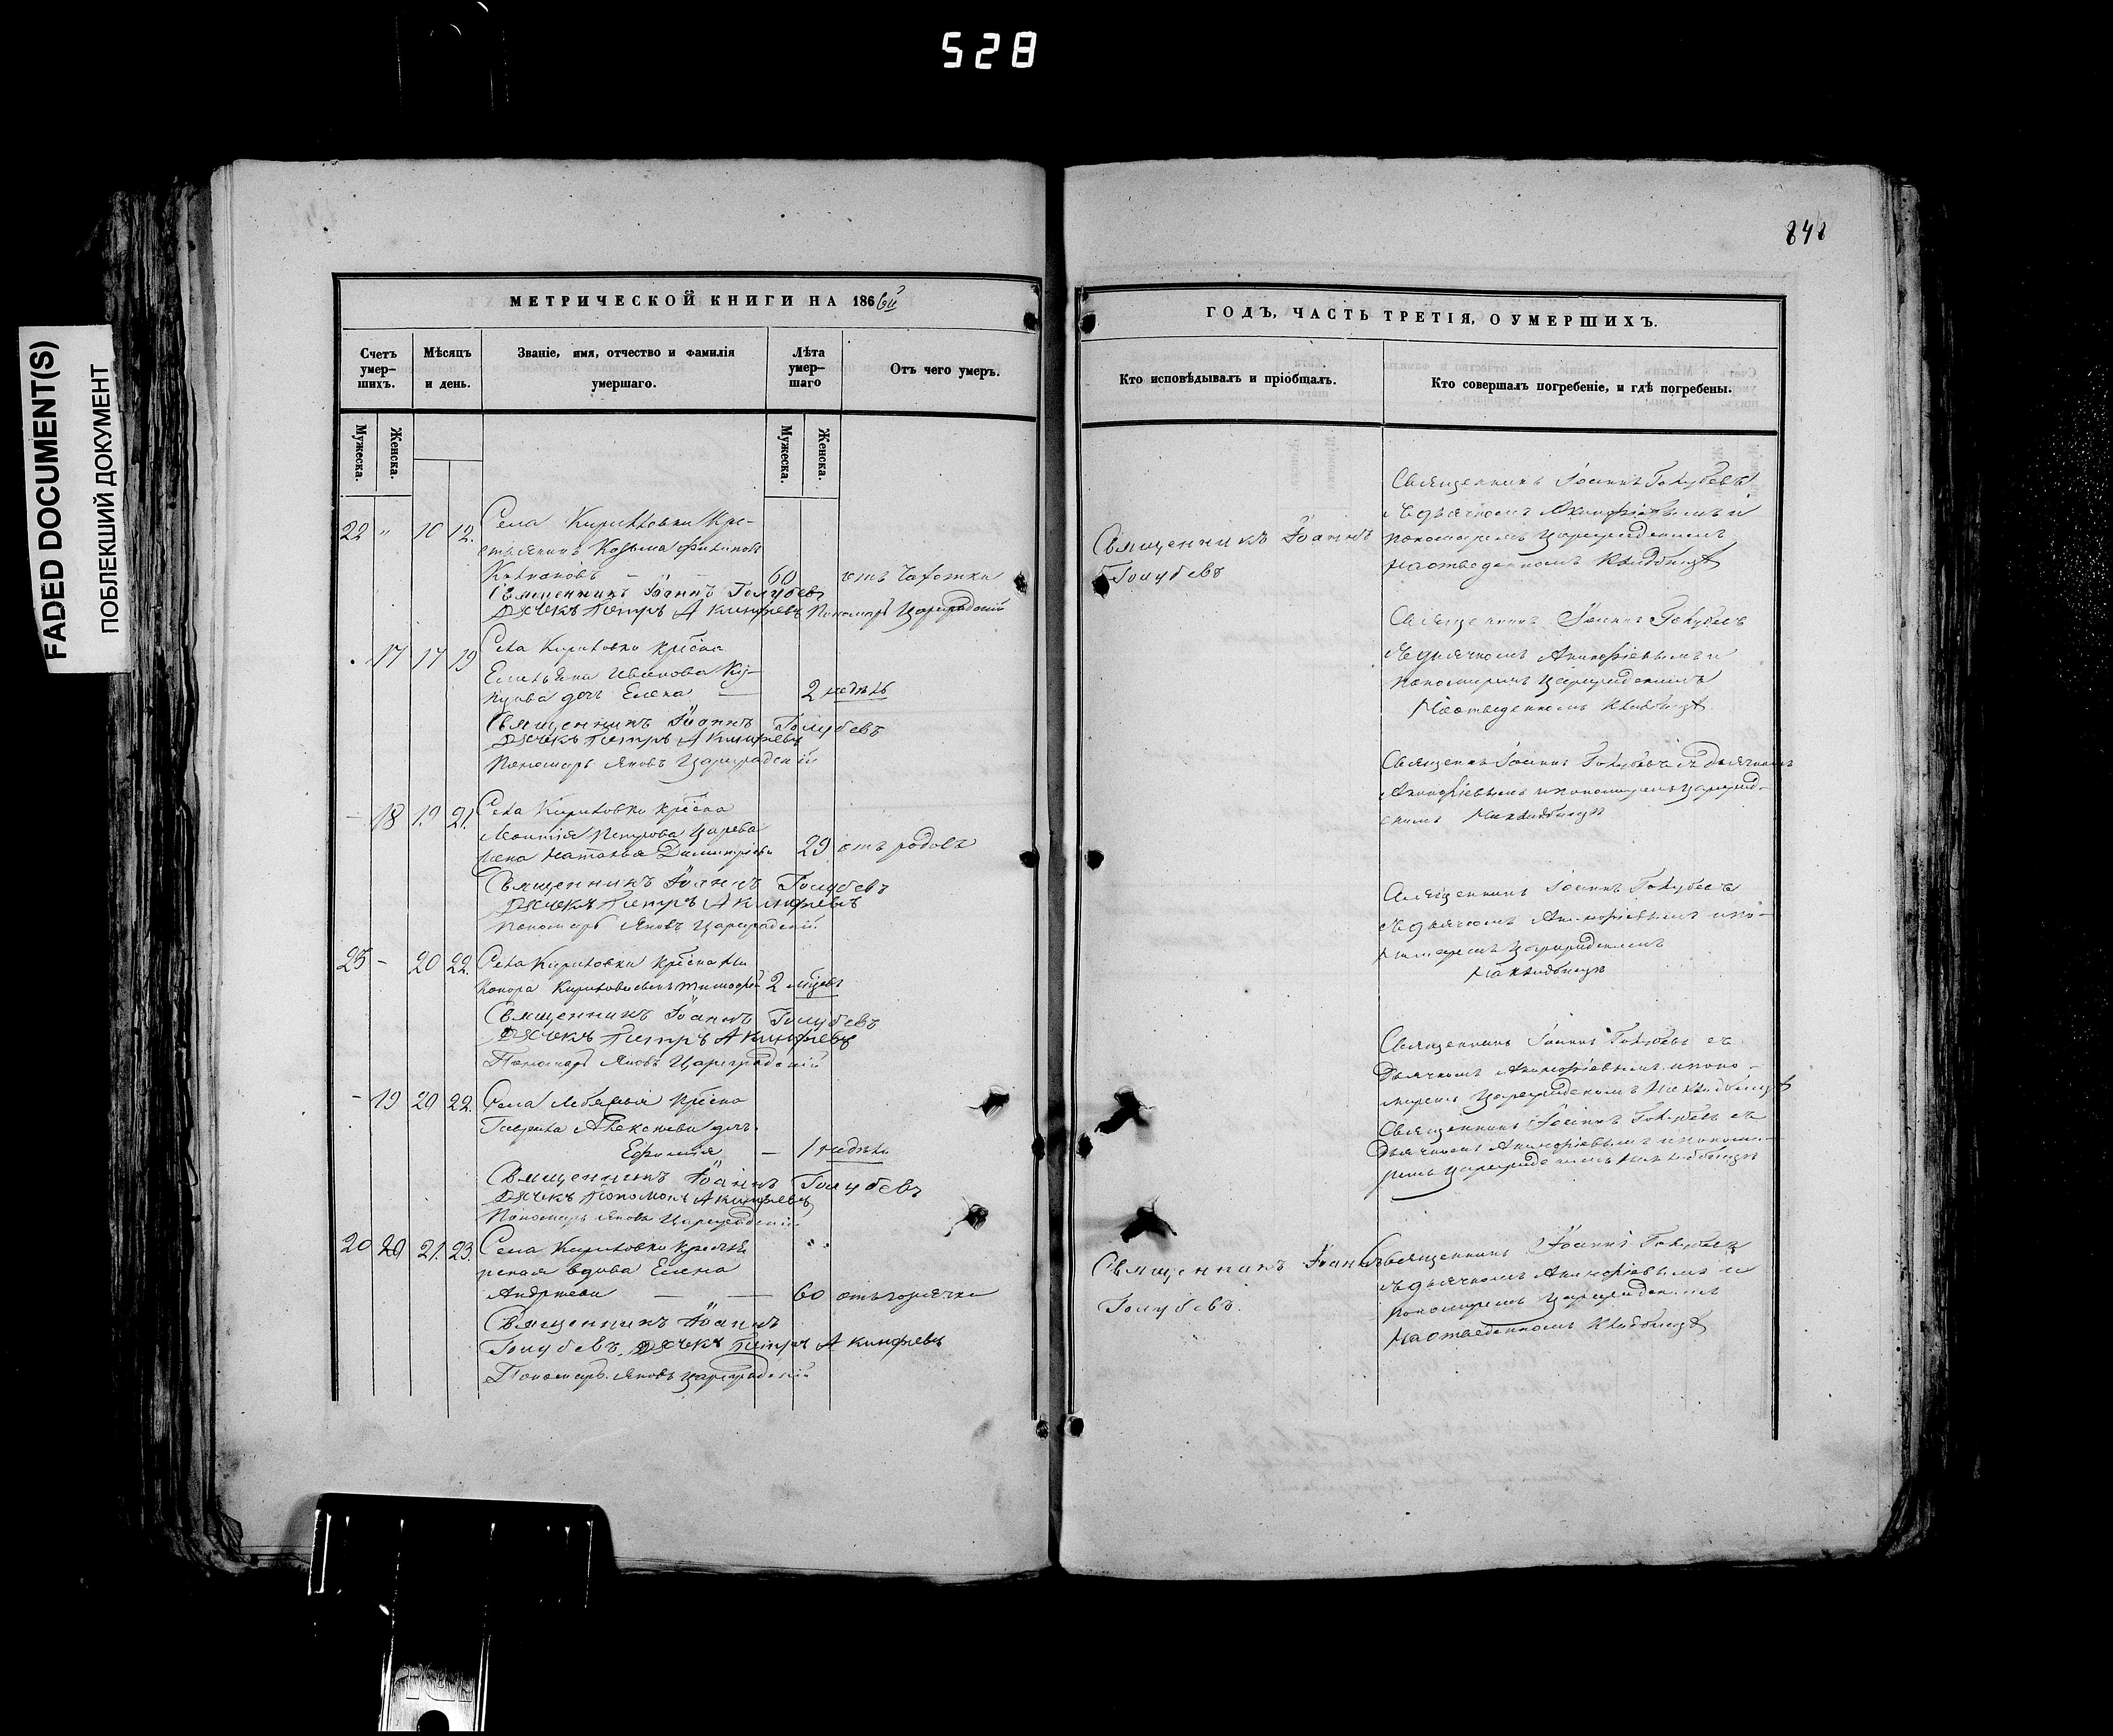 528
FADED DOCUMENT(S)
ПОБЛЕКШИЙ ДОКУМЕНТ
МЕТРИЧЕСКОЙ КНИГИ НА 186
Счетъ умер-шихъ.
Мѣсяцъ и день.
Званіе, имя, отчество и фамилія умершаго.
Лѣта умер-шаго
Отъ чего умеръ.
Мужеска.
Женска.
Мужеска.
Женска.
22 " 10 12. Села Кириловки Кре-
стьянинъ Козьма
60 отъ чахотки
Священникъ Іоаннъ Голубевъ
Дячекъ Петръ Акинфіевъ Пономарь Цареградскій
17 17 19 Села Кириловки
Иванова
дочь Елена — 2 недѣль
Священникъ Іоаннъ Голубевъ
Дячекъ Петръ Акинфіевъ
Пономарь Яковъ Цареградскій
- 18 19 21. Села Кириловки
Петрова Царева
жена Наталья Димитріева 29 отъ родовъ
Священникъ Іоаннъ Голубевъ
Дячекъ Петръ Акинфіевъ
Пономарь Яковъ Цареградскій
- 20 22. Села Кириловки
2
Священникъ Іоаннъ Голубевъ
Дячекъ Петръ Акинфіевъ
Пономарь Яковъ Цареградскій
- 19 20 22. Села
дочь
— 1
Священникъ Іоаннъ Голубевъ
Дячекъ Акинфіевъ
Пономарь Яковъ Цареградскій
20 20 21. 23. Села Кириловки
вдова Елена
Андреева — — 60 отъ горячки
Священникъ Іоаннъ
Голубевъ, Дячекъ Петръ Акинфіевъ
Пономарь Яковъ Цареградскій
ГОДЪ, ЧАСТЬ ТРЕТІЯ, О УМЕРШИХЪ.
Кто исповѣдывалъ и пріобщалъ.
Кто совершалъ погребеніе, и гдѣ погребены.
Священникъ Іоаннъ
Голубевъ
Священникъ Іоаннъ Голубевъ
съ дьячкомъ Акинфіевымъ и
пономаремъ Цареградскимъ
на отведенномъ кладбищѣ
Священникъ Іоаннъ Голубевъ
съ дьячкомъ Акинфіевымъ и
пономаремъ Цареградскимъ
На отведенномъ кладбищѣ
Іоаннъ Голубевъ съ дьячкомъ
Акинфіевымъ и пономаремъ Цареград-
скимъ На кладбищѣ
Священникъ Іоаннъ Голубевъ
съ дьячкомъ Акинфіевымъ и по-
номаремъ Цареградскимъ
На кладбищѣ
Священникъ Іоаннъ Голубевъ съ
дьячкомъ Акинфіевымъ и поно-
маремъ Цареградскимъ На кладбищѣ
Священникъ Іоаннъ Голубевъ съ
дьячкомъ Акинфіевымъ и понома-
ремъ Цареградскимъ на кладбищѣ
Священникъ Іоаннъ
Голубевъ.
Священникъ Іоаннъ Голубевъ
съ дьячкомъ Акинфіевымъ и
пономаремъ Цареградскимъ
На отведенномъ кладбищѣ